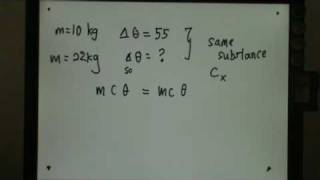 m=10 kg Δθ = 55
m=22kg Δθ = ?
so
same
substance
Cx
m c θ = m c θ